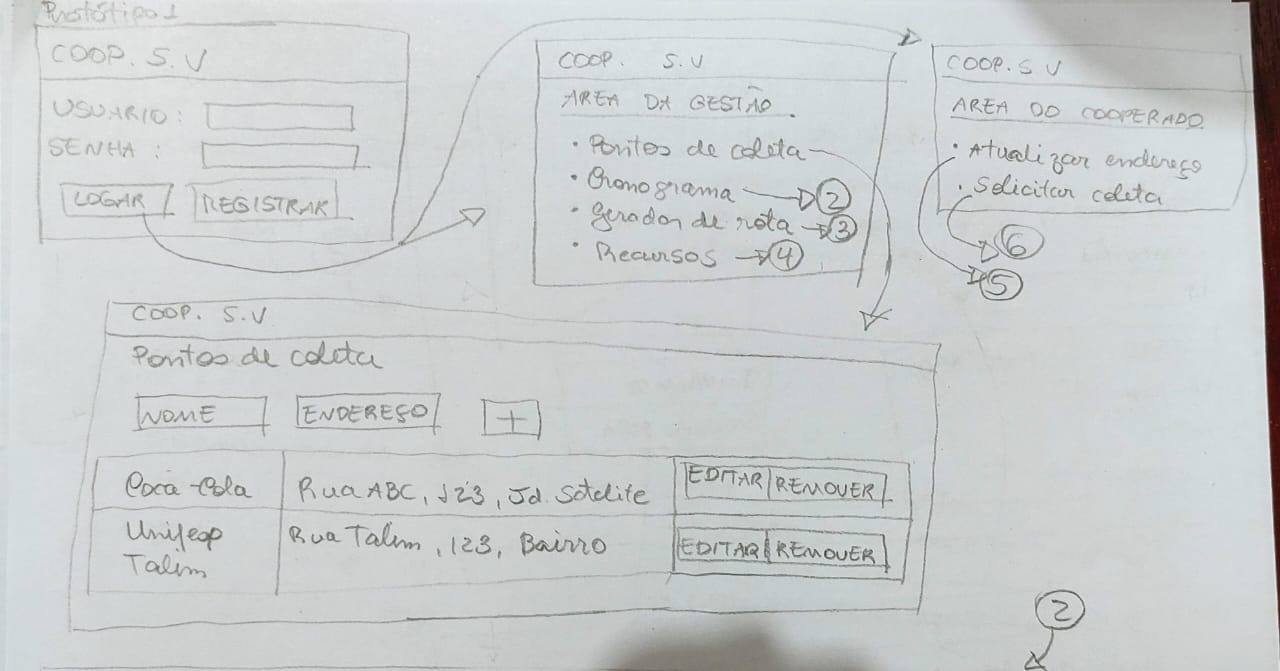 Protótipo 1
COOP. S. V
USUARIO:
SENHA:
LOGAR
REGISTRAR
COOP. S.V
AREA DA GESTÃO
• Pontos de coleta
• Cronograma 2
• Gerador de rota 3
• Recursos 4
COOP. S V
AREA DO COOPERADO
• Atualizar endereço
• Solicitar coleta
6
5
COOP. S.V
Pontos de coleta
NOME ENDEREÇO +
Coca-Cola Rua ABC, 123, Jd. Satelite EDITAR REMOVER
Unifesp Rua Talim, 123, Bairro EDITAR REMOVER
Talim
2